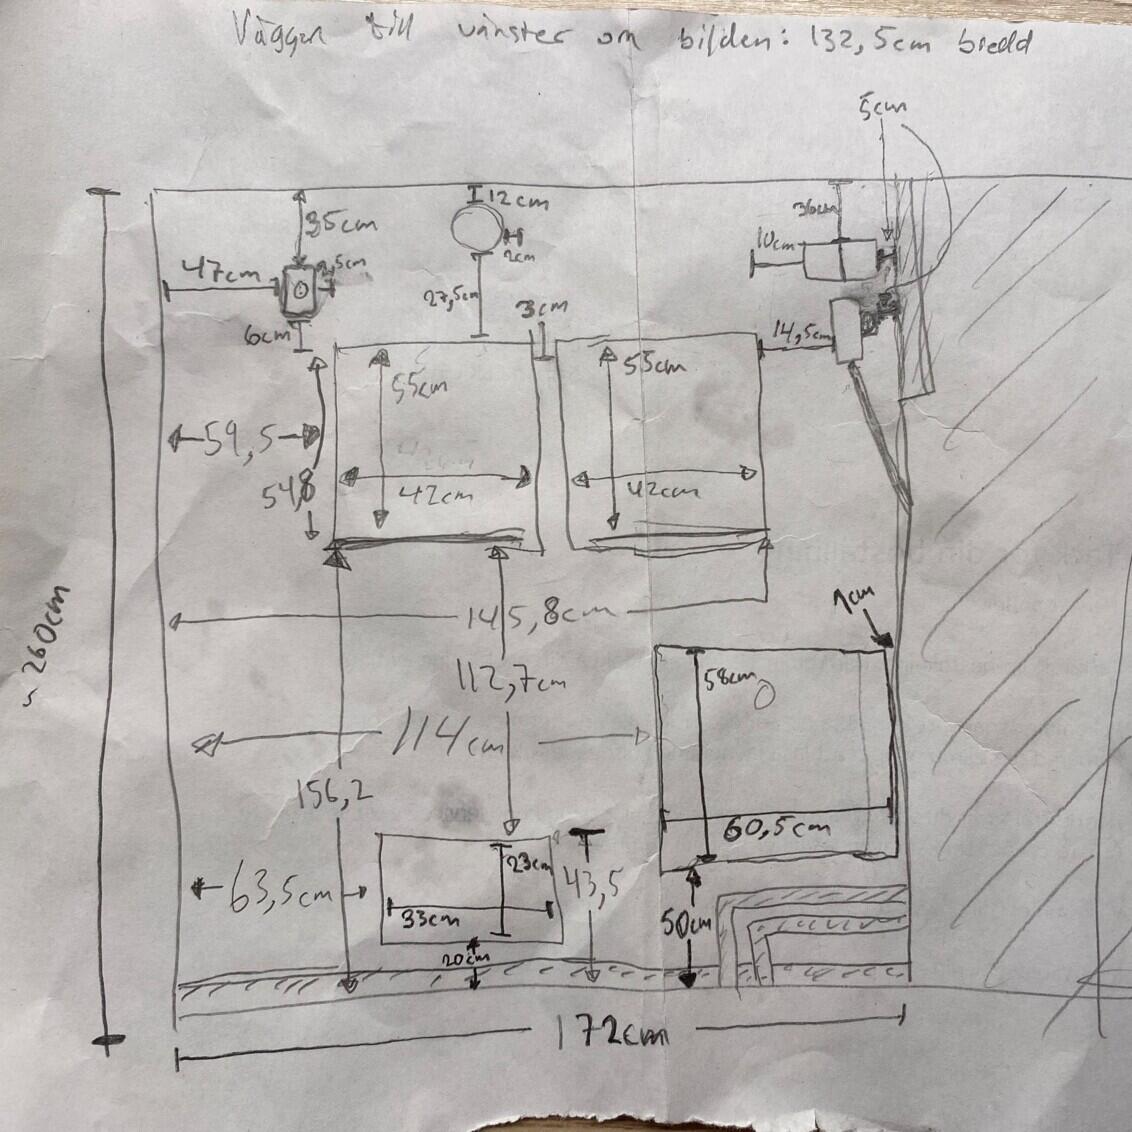 Väggen till vänster om bilden: 132,5cm bredd
5cm
12cm
36cm
35cm
2cm
10cm
47cm
2,5cm
27,5cm
3cm
6cm
14,5cm
55cm
55cm
59,5
42cm
42cm
54,8
145,8cm
1cm
~ 260cm
112,7cm
58cm
114cm
156,2
60,5cm
23cm
43,5
63,5cm
33cm
50cm
20cm
172cm